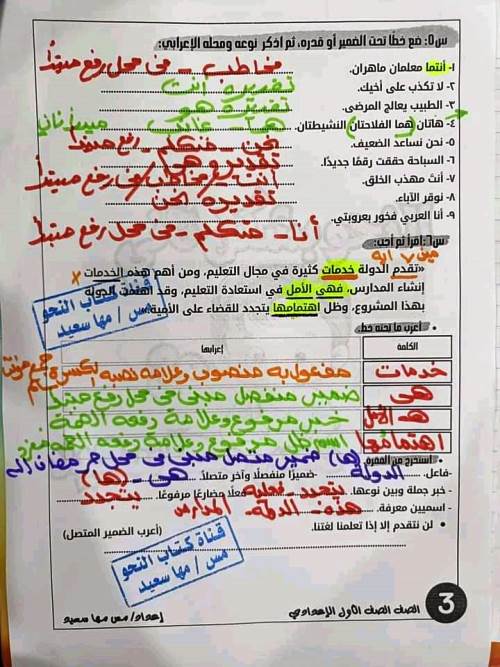 س٥: ضع خطًا تحت الضمير أو قدره، ثم اذكر نوعه ومحله الإعرابي:
١- أنتما معلمان ماهران. مخاطب - فى محل رفع مبتدأ
٢- لا تكذب على أخيك. تقديره أنت
٣- الطبيب يعالج المرضى. تقديره هو
٤- هاتان (هما الفلاحتان) النشيطتان. هما - غائب مبتدأ ثاني
٥- نحن نساعد الضعيف. نحن - متكلم - رفع مبتدأ
٦- السباحة حققت رقمًا جديدًا. تقديره هى
٧- أنت مهذب الخلق. أنت - مخاطب فى رفع مبتدأ
٨- نوقر الآباء. تقديره نحن
٩- أنا العربي فخور بعروبتي. أنا - متكلم - فى محل رفع مبتدأ
س٦: اقرأ ثم أجب:
«تقدم الدولة خدمات كثيرة في مجال التعليم، ومن أهم هذه الخدمات
إنشاء المدارس، فهي الأمل في استعادة التعليم، وقد اهتمت الدولة
بهذا المشروع، وظل اهتمامها يتجدد للقضاء على الأمية».
قناة كتاب النحو
مس / مها سعيد
• أعرب ما تحته خط.
الكلمة إعرابها
خدمات مفعول به منصوب وعلامة نصبه الكسرة جمع مؤنث سالم
هى ضمير منفصل مبنى فى محل رفع مبتدأ
الأمل خبر مرفوع وعلامة رفعه الضمة
اهتمامها اسم ظل مرفوع وعلامة رفعه الضمة
(ها) ضمير متصل مبنى فى محل جر مضاف إليه
• استخرج من الفقرة:
-فاعل. الدولة -ضميرًا منفصلًا وآخر متصلًا. هى - (ها)
- خبر جملة وبين نوعها. يتجدد - فعلية -فعلًا مضارعًا مرفوعًا. يتجدد
- اسميين معرفة. هذه - الدولة - المدارس
• لن نتقدم إلا إذا تعلمنا لغتنا. (أعرب الضمير المتصل)
قناة كتاب النحو
مس / مها سعيد
إعداد/ مس مها سعيد
الصف الصف الأول الإعدادي
3